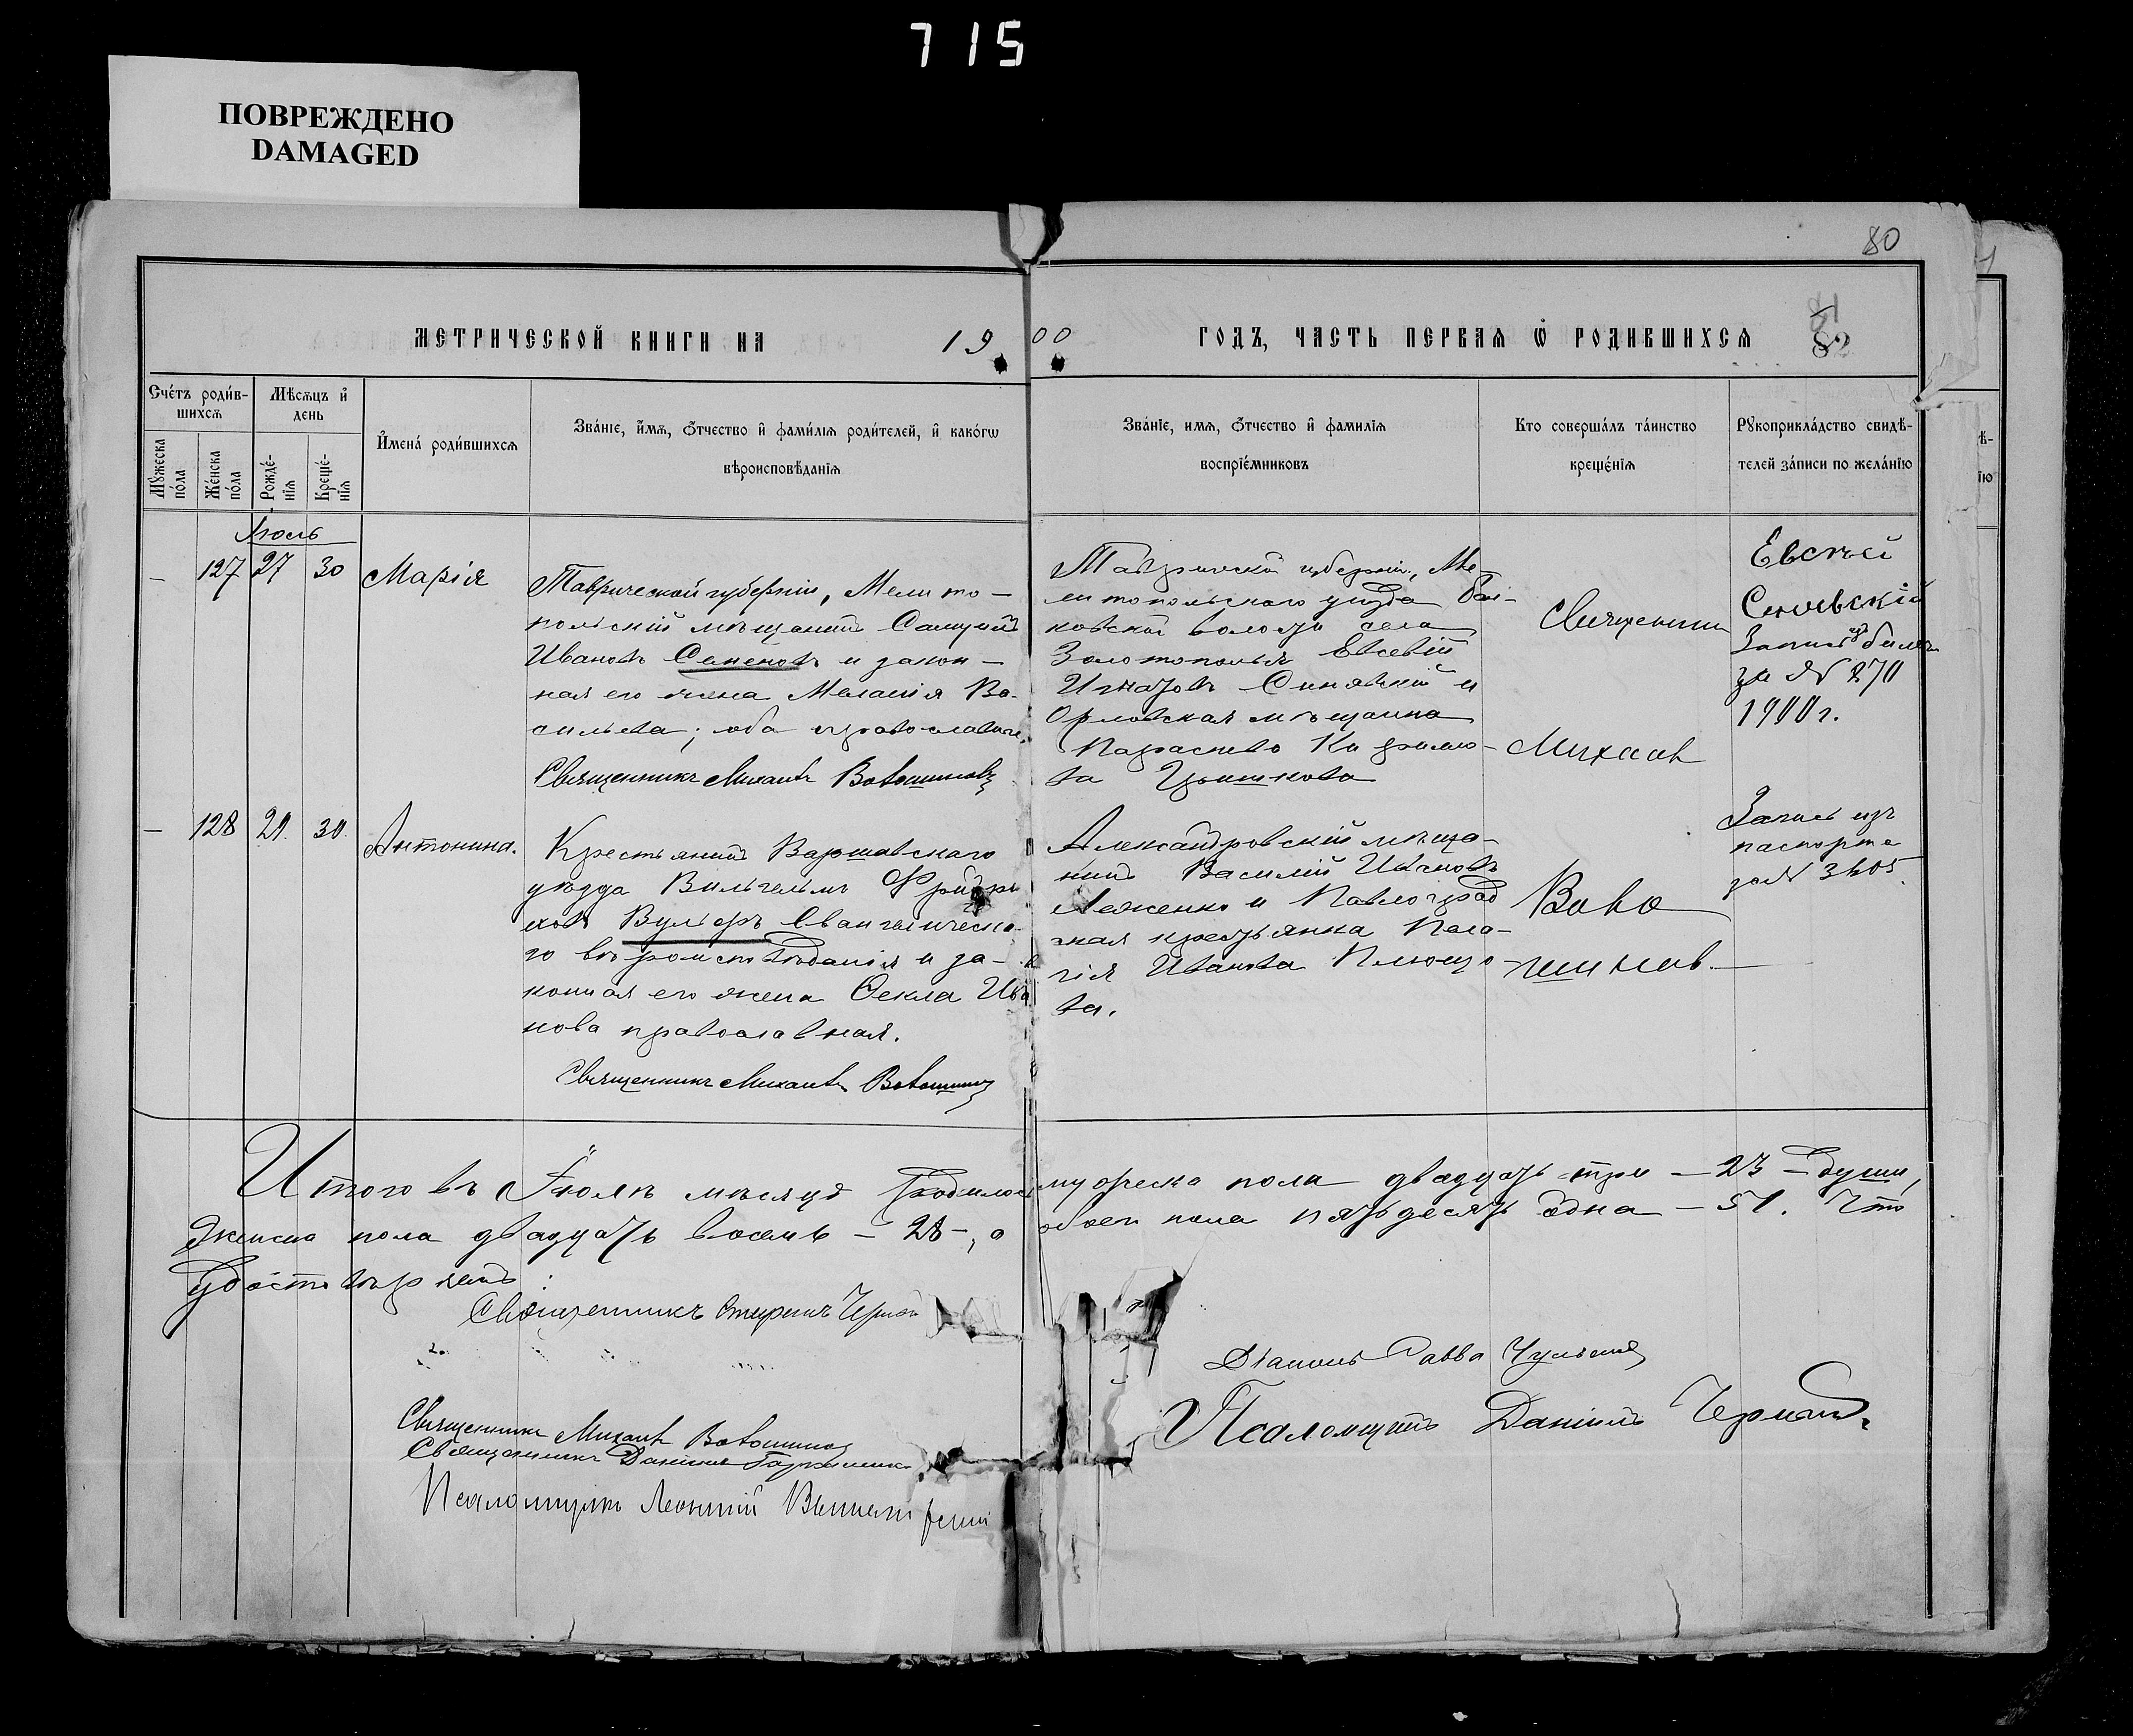 715
ПОВРЕЖДЕНО
DAMAGED
80
МЕТРИЧЕСКОЙ КНИГИ НА 1900 ГОДЪ, ЧАСТЬ ПЕРВАЯ Ѿ РОДИВШИХСЯ
Счетъ родив-
шихся
Мѣсяцъ и
день
Мужеска
пола
Женска
пола
Рожде-
нія
Креще-
нія
Имена родившихся
Званіе, имя, отчество и фамилія родителей, и какогѡ
вѣроисповѣданія
Званіе, имя, отчество и фамилія
воспріемниковъ
Кто совершалъ таинство
крещенія
Рукоприкладство свидѣ-
телей записи по желанію
Іюль
— 127 27 30 Марія
Таврической губерніи, Мелито-
польскій мѣщанинъ Самуилъ
Ивановъ Семеновъ и закон-
ная его жена Меланія Ва-
сильева; оба православные.
Священникъ Михаилъ Ватошиновъ
Таврической губерніи, Ме-
литопольскаго уѣзда
волости села
Золотополья Евсевій
Игнатовъ Синявскій и
Орловская мѣщанка
Священникъ
Михаилъ
Евсѣй
Синявскій
Запись изъ
за № 270
1900 г.
— 128 29. 30. Антонина.
Крестьянинъ Варшавскаго
уѣзда Вильгельмъ Фридри-
ховъ Вульфъ Евангелическа-
го вѣроисповѣданія и за-
конная его жена Ѳекла Ива
нова православная.
Священникъ Михаилъ Ватошиновъ
Александровскій мѣща-
нинъ Василій Ивановъ
и Павлоград
ская крестьянка Пела-
гія Иванова
ва.
Вато
шинов.
Запись изъ
паспорта
за №
Итого въ Іюлѣ мѣсяцѣ родилось мужеска пола двадцать три — 23 — души,
Женска пола двадцать восемь — 28 —, а обоего пола пятьдесятъ одна — 51. Что
удостовѣряемъ:
Священникъ
Діаконъ Савва
Священникъ Михаилъ Ватошиновъ
Священникъ Даніилъ
Псаломщикъ Даніилъ
Псаломщикъ Леонтій